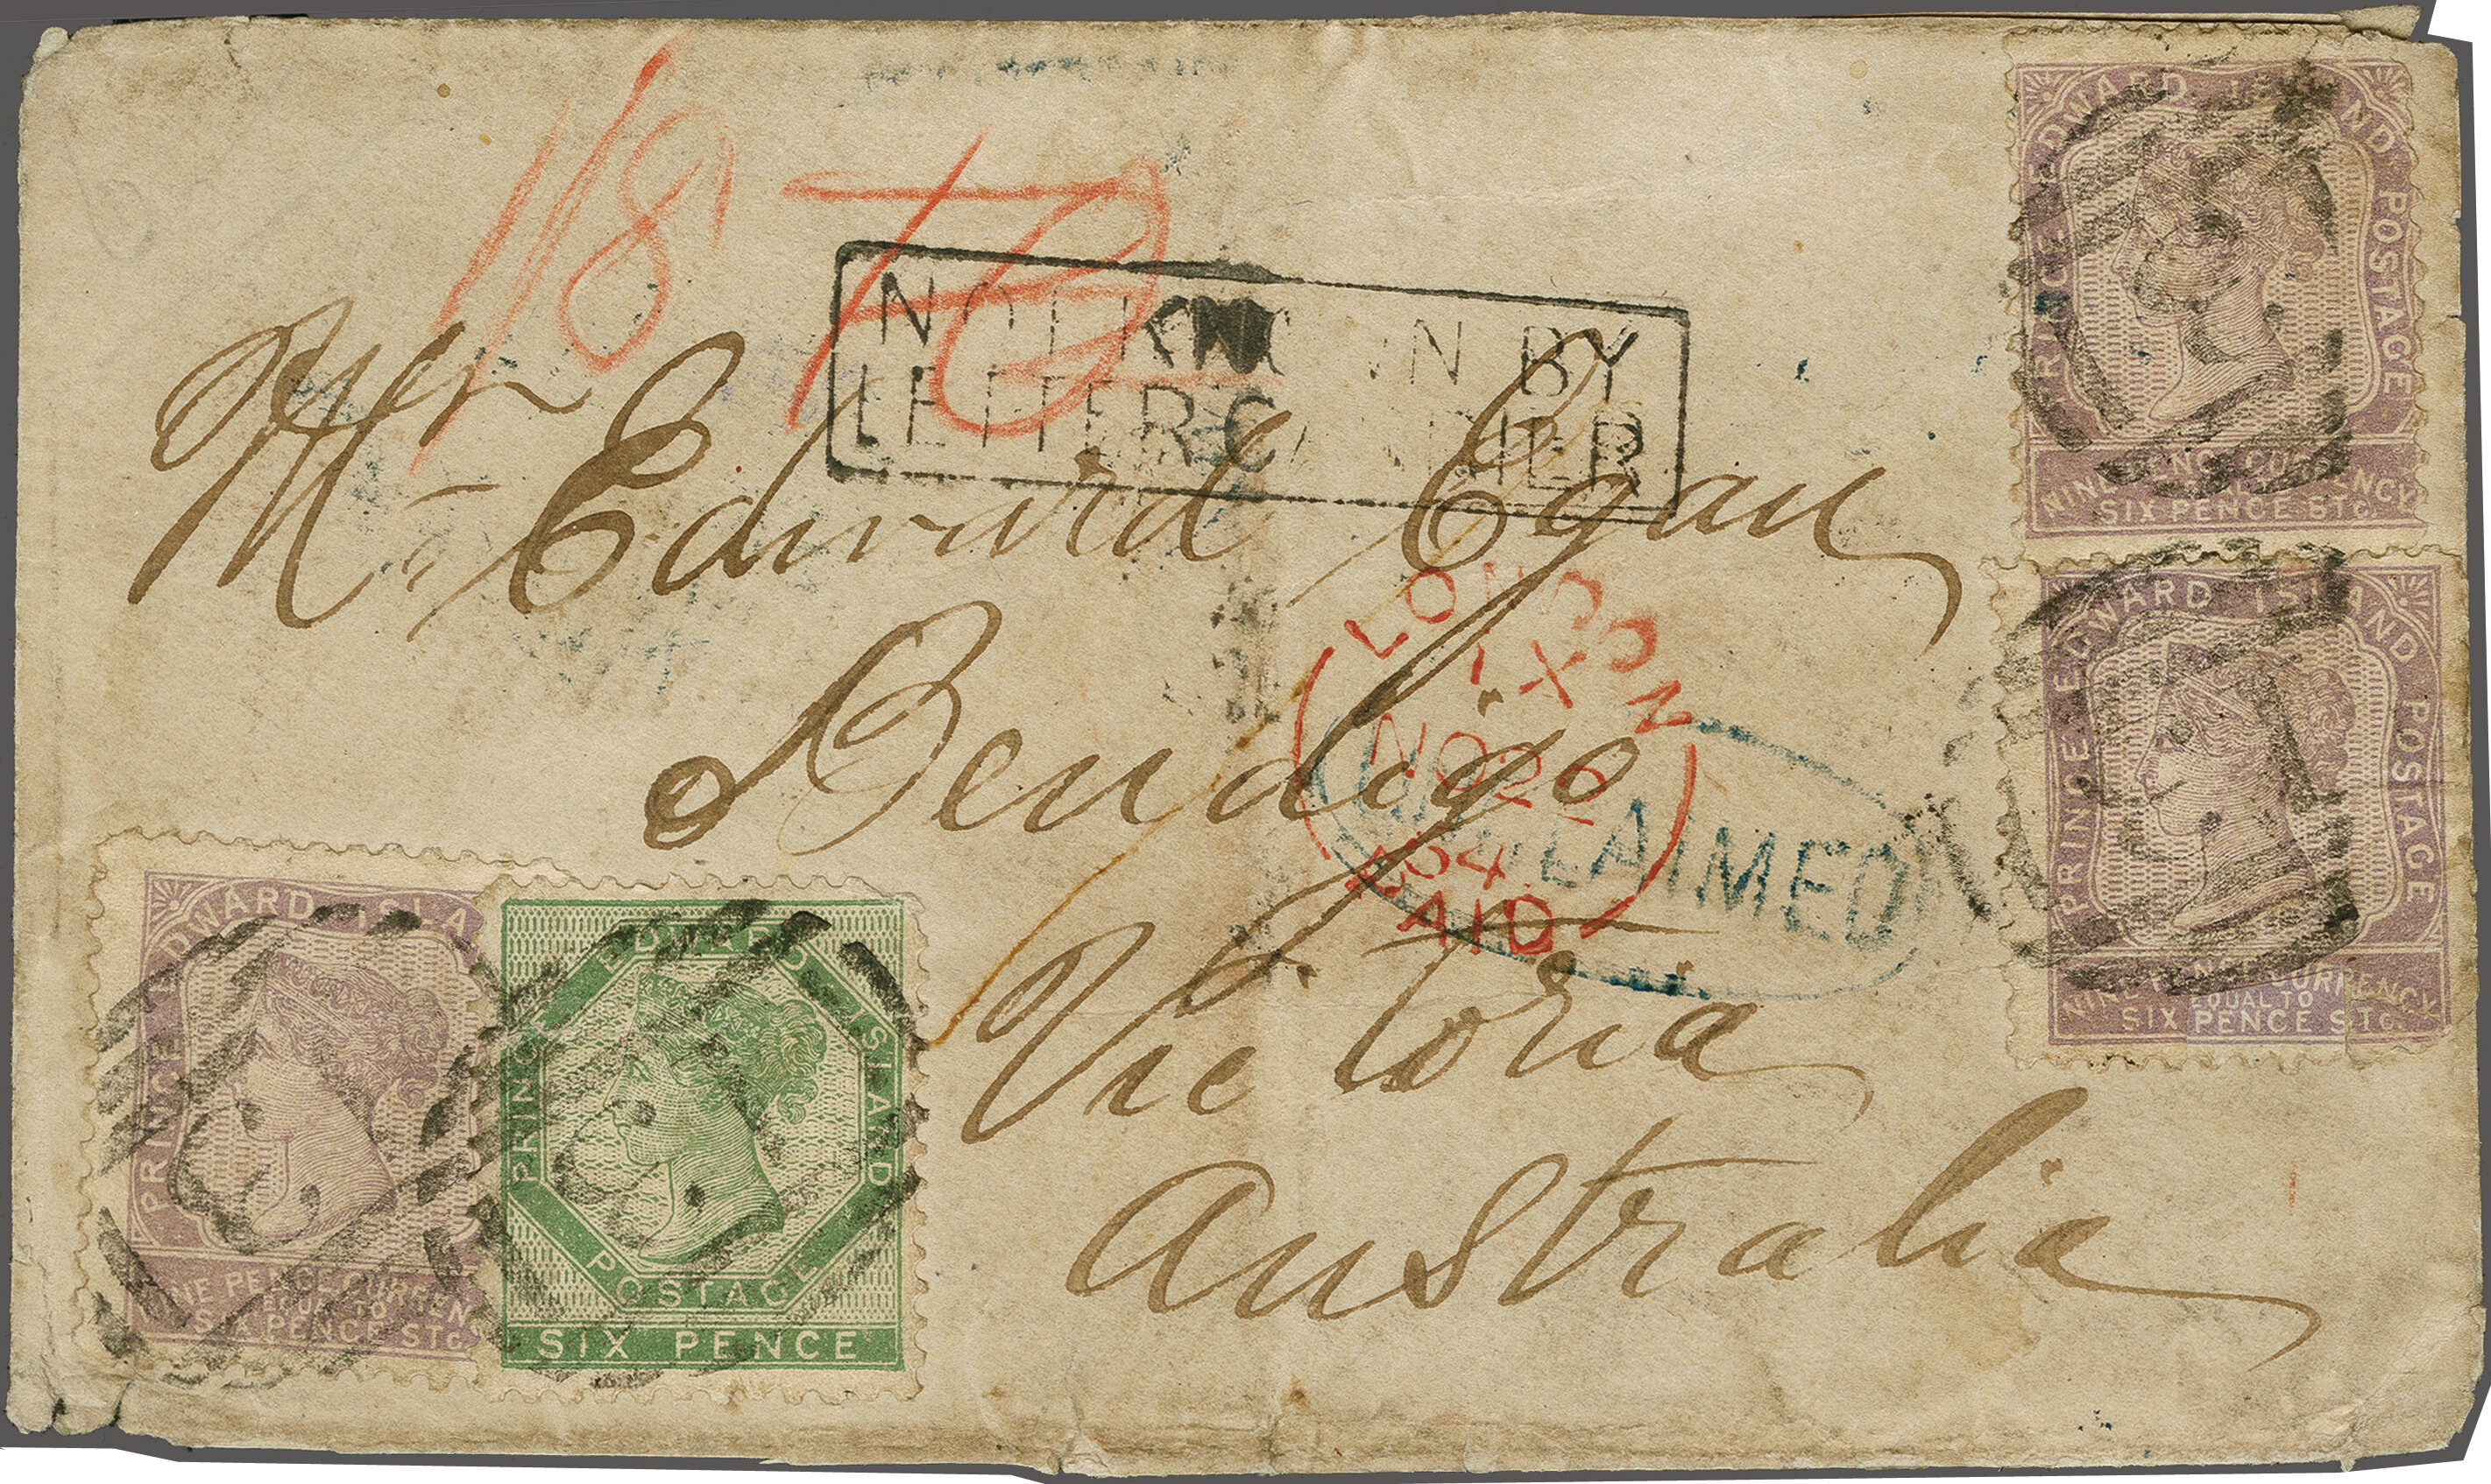 1/8
NOT KNOWN BY
LETTER CARRIER
Mr Edward Egan
Bendigo
Victoria
Australia
LONDON
X
NO 25
64
PAID
UNCLAIMED
PRINCE EDWARD ISLAND POSTAGE
NINE PENCE CURRENCY
SIX PENCE STG.
PRINCE EDWARD ISLAND POSTAGE
NINE PENCE CURRENCY
EQUAL TO
SIX PENCE STG.
PRINCE EDWARD ISLA
NINE PENCE CURREN
EQUAL TO
SIX PENCE STG
PRINCE EDWARD ISLAND
POSTAGE
SIX PENCE